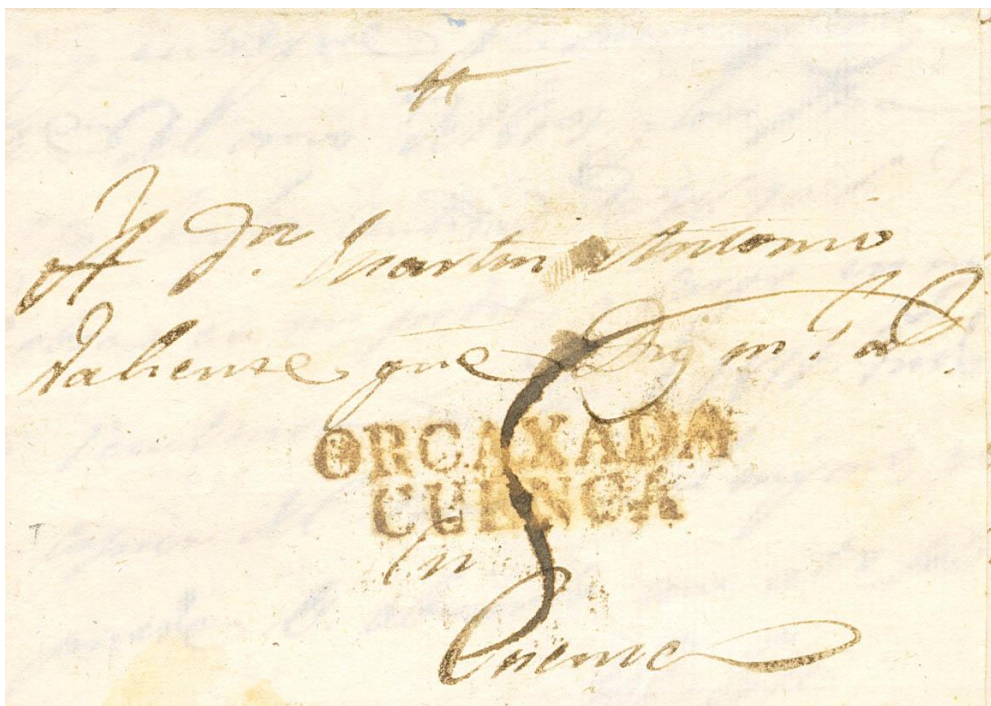 A Dn. Martin Antonio
Valiense que Dios m.s a.s
ORCAXADA
CUENCA
5
En
Cuenca